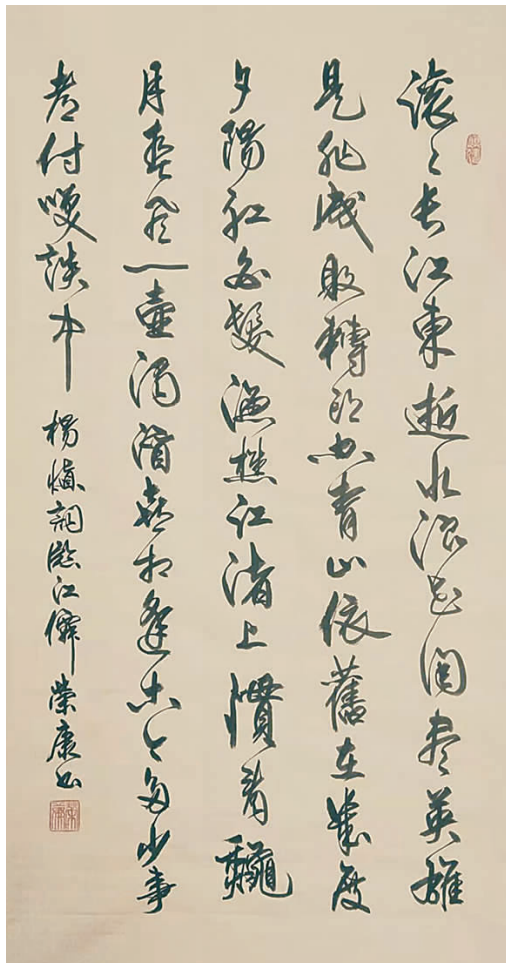 滚々長江東逝水浪花淘尽英雄
是非成敗轉頭空青山依舊在幾度
夕陽紅白髮漁樵江渚上慣看龝
月春風一壺濁酒喜相逢古今多少事
都付咲談中 楊慎詞臨江僊 榮康书